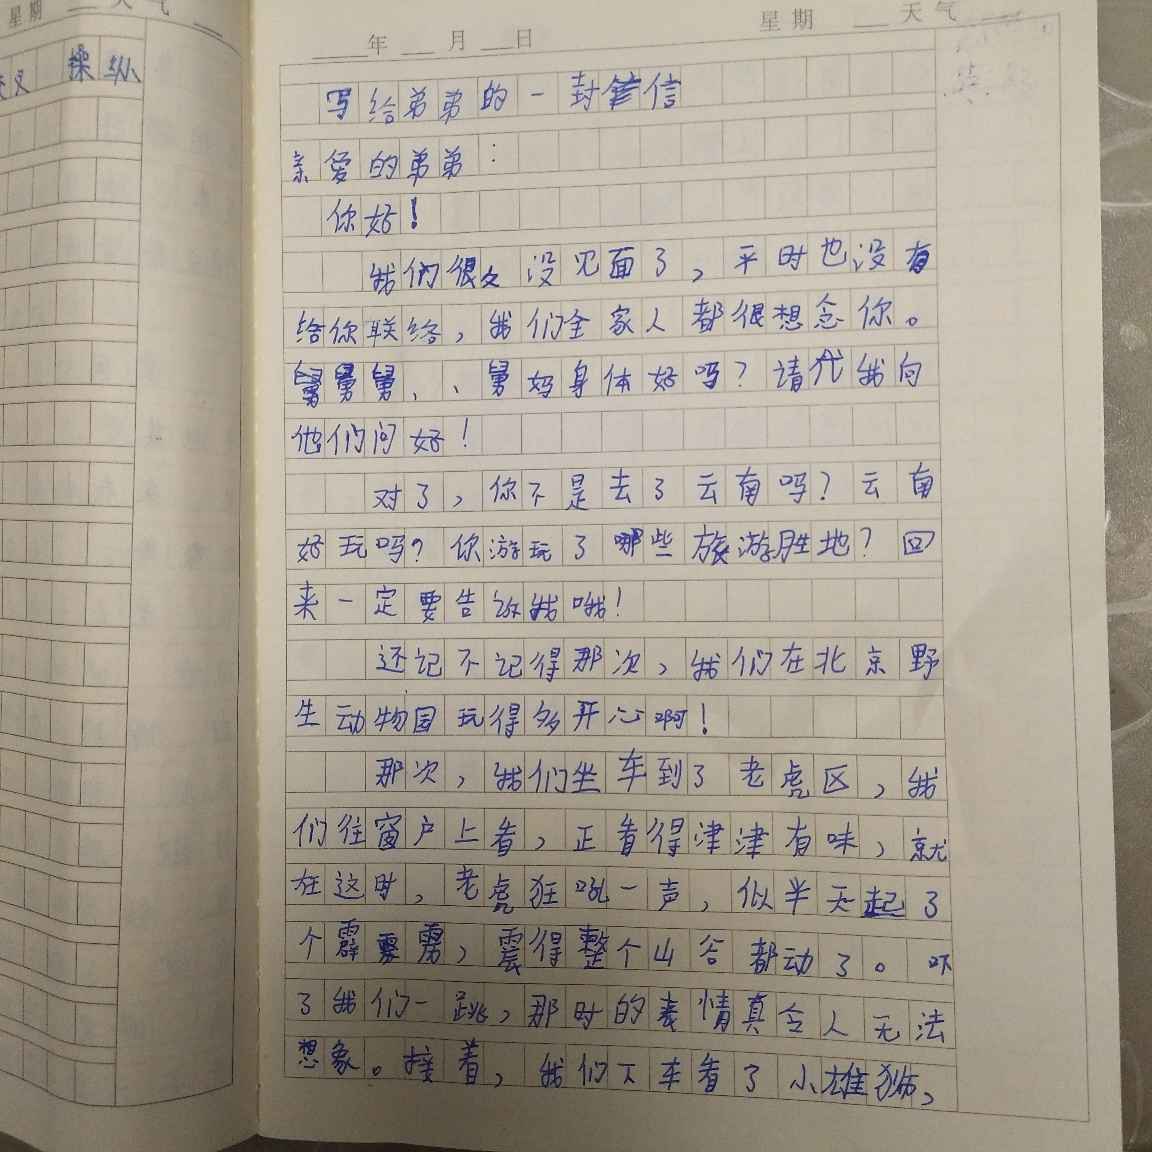 星期 天气
操纵
年 月 日 星期 天气
写给弟弟的一封信
亲爱的弟弟：
你好！
我们很久没见面了，平时也没有
给你联络，我们全家人都很想念你。
舅舅舅、、舅妈身体好吗？请代我向
他们问好！
对了，你不是去了云南吗？云南
好玩吗？你游玩了哪些旅游胜地？回
来一定要告诉我哦！
还记不记得那次，我们在北京野
生动物园玩得多开心啊！
那次，我们坐车到了老虎区，我
们往窗户上看，正看得津津有味，就
在这时，老虎狂吼一声，似半天起了
个霹雳，震得整个山谷都动了。吓
了我们一跳，那时的表情真令人无法
想象。接着，我们下车看了小雄狮，